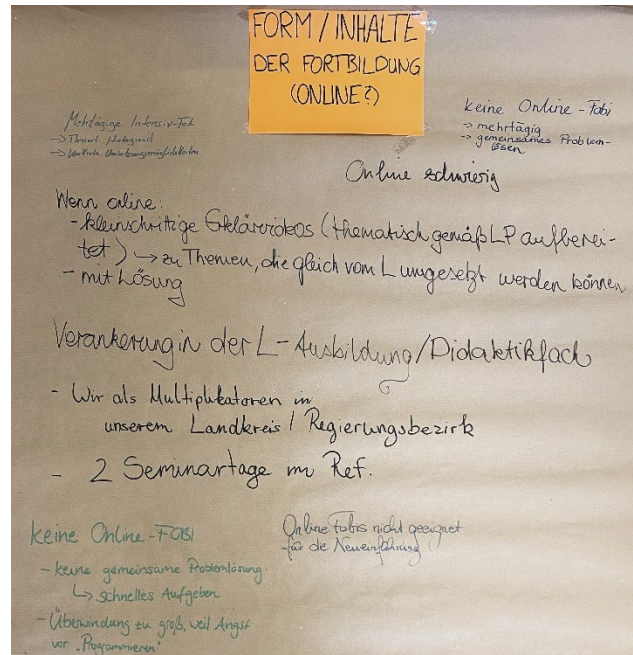 FORM / INHALTE
DER FORTBILDUNG
(ONLINE?)
Mehrtägige Intensiv-Fobi
→ Theorie
→ konkrete Umsetzungsmöglichkeiten
keine Online-Fobi
→ mehrtägig
→ gemeinsames Problem-
lösen
Online schwierig
Wenn online:
- kleinschrittige Erklärvideos (thematisch gemäß LP aufberei-
tet) → zu Themen, die gleich vom L umgesetzt werden können
- mit Lösung
Verankerung in der L-Ausbildung/Didaktikfach
- Wir als Multiplikatoren in
unserem Landkreis / Regierungsbezirk
- 2 Seminartage im Ref.
keine Online-FOBI
- keine gemeinsame Problemlösung
↳ schnelles Aufgeben
- Überwindung zu groß, weil Angst
vor „Programmieren"
Online Fobis nicht geeignet
für die Neueinführung